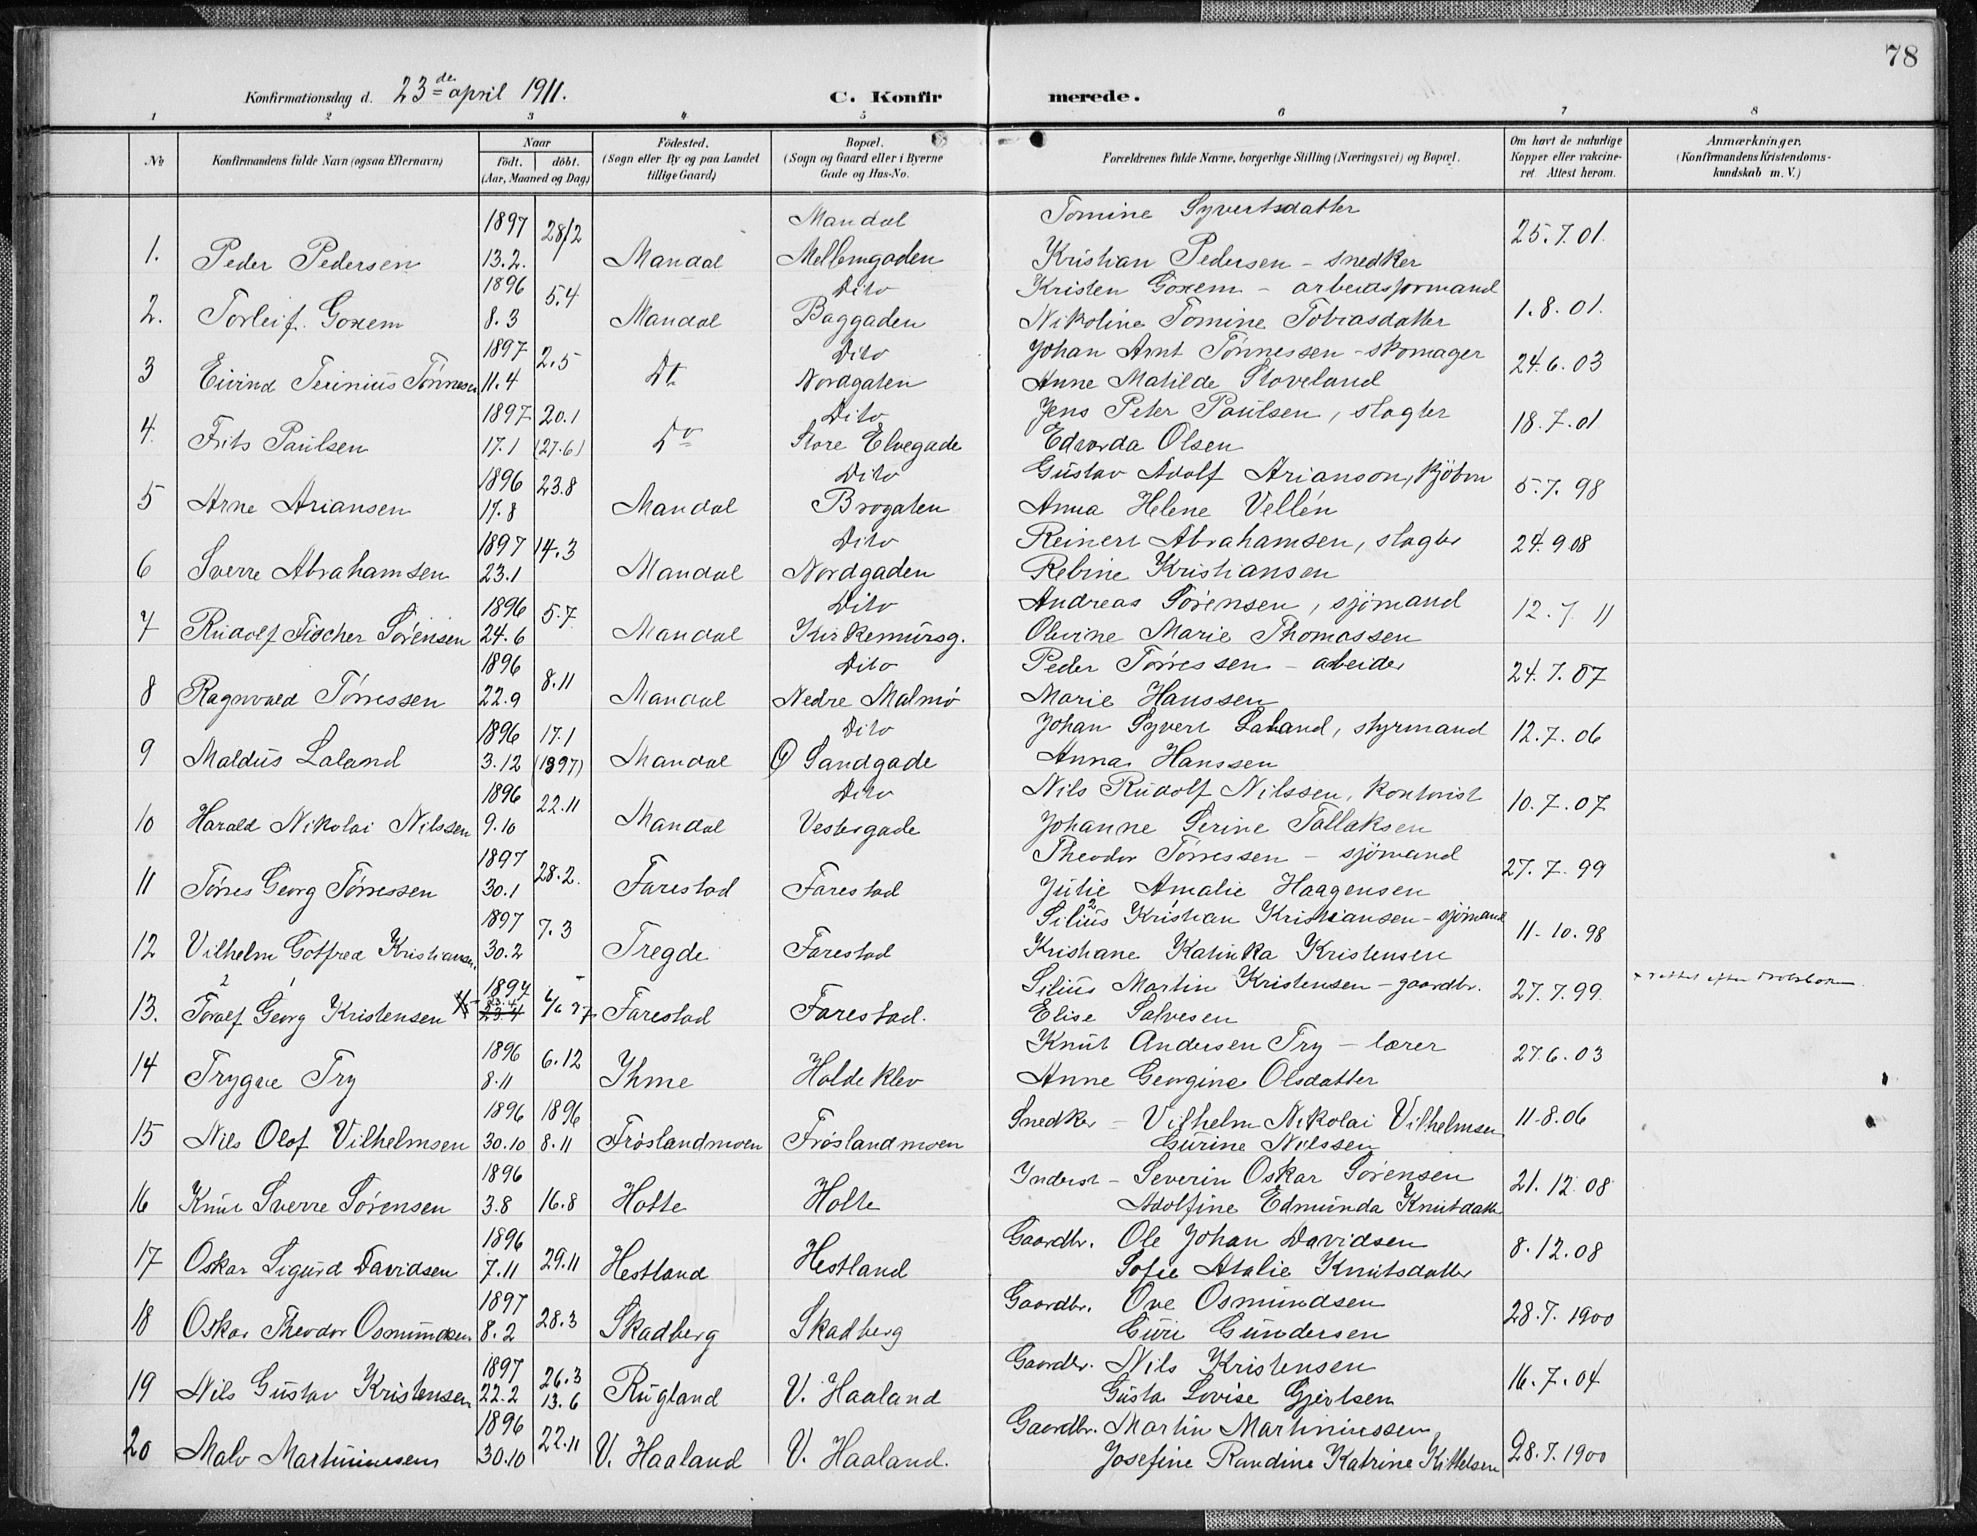 78
Konfirmationsdag d. 23de april 1911. C. Konfirmerede.
1 2 3 4 5 6 7 8
No Konfirmandens fulde Navn (ogsaa Efternavn) Naar født. døbt. (Aar, Maaned og Dag) Fødested. (Sogn eller By og paa Landet tillige Gaard) Bopæl. (Sogn og Gaard eller i Byerne Gade og Hus-No. Forældrenes fulde Navne, borgerlige Stilling (Næringsvei) og Bopæl. Om havt de naturlige Kopper eller vakcineret. Attest herom. Anmærkninger. (Konfirmandens Kristendomskundskab m. V.)
1897 28/2 Mandal Tomine Syvertsdatter 25.7.01.
1. Peder Pedersen 13.2. Mandal Mellemgaden Kristian Pedersen - snedker
1896 5.4 Dito Kristen Goxem - arbeidsformand 1.8.01.
2. Torleif Goxem 8.3 Mandal Baggaden Nikoline Tomine Tobiasdatter
1897 2.5 Dito Johan Arnt Tønnessen - skomager 24.6.03
3 Eivind Terinius Tønnesen 11.4 Dt. Nordgaten Anne Matilde Stoveland
1897 20.1 Dito Jens Peter Paulsen, slagter 18.7.01
4. Frits Paulsen 17.1 (27.6) Do Store Elvegade Edvarda Olsen
1896 23.8 Dito Gustav Adolf Arianson, kjøbm 5.7.98
5 Arne Ariansen 17.8 Mandal Brogaten Anna Helene Vellén
1897 14.3 Dito Reinert Abrahamsen, slagter 24.9 08
6 Sverre Abrahamsen 23.1 Mandal Nordgaden Rebine Kristiansen
1896 5.7 Dito Andreas Sørensen, sjømand 12.7 11
7 Rudolf Fischer Sørensen 24.6 Mandal Kirkemursg. Olevine Marie Thomassen
1896 8.11 Dito Peder Tørressen - arbeider 24.7.07
8 Ragnvald Tørressen 22.9 Mandal Nedre Malmø Marie Hanssen
1896 17.1 Dito Johan Syvert Laland, styrmand 12.7.06
9 Maldus Laland 3.12 (1897) Mandal Ø Sandgade Anna Hanssen
1896 22.11 Dito Nils Rudolf Nilssen, kontorist 10.7.07
10 Harald Nikolai Nilssen 9.10 Mandal Vestergade Johanne Serine Tallaksen
1897 28.2. Theodor Tørressen - sjømand 27.7.99
11 Tørres Georg Tørressen 30.1 Farestad Farestad Julie Amalie Haagensen
1897 7.3 Silius Kristian Kristiansen - sjømand 11-10.98
12 Vilhelm Gotfred Kristiansen. 30.2 Tregde Farestad Kristiane Katinka Kristensen
1897 Silius Martin Kristensen - gaardbr. 27.7.99.
13. Toralf Georg Kristensen 23.4 6/6 97 Farestad Farestad. Elise Salvesen
1896 6.12 Knut Andersen Try - lærer 27.6.03
14 Trygve Try 8.11 Ihme Holdeklev Anne Georgine Olsdatter
1896 1896 Snedker - Vilhelm Nikolai Vilhelmsen 11-8.06
15 Nils Olof Vilhelmsen 30.10 8.11 Frøslandmoen Frøslandmoen Gurine Nilssen
1896 Inderst - Severin Oskar Sørensen 21.12.08
16 Knut Sverre Sørensen 3.8 16.8 Holte Holte Adolfine Edmunda Knutdatter
1896 Gaardbr. Ole Johan Davidsen 8.12.08
17 Oskar Sigurd Davidsen 7.11 29.11 Hestland Hestland Sofie Atalie Knutsdatter
1897 Gaardbr. Ove Osmundsen 28.7.1900
18 Oskar Theodor Osmundsen 8.2 28.3 Skadberg Skadberg Guri Gundersen
1897 26.3 Gaardbr. Nils Kristensen 16.7.04
19 Nils Gustav Kristensen 22.2 13.6 Rugland V. Haaland Gusta Lovise Gjertsen
1896 22.11 Gaardbr. Martin Martiniussen
20 Malv Martiniussen 30.10 V. Haaland V. Haaland. Josefine Randine Katrine Kittelsen 28.7.1900